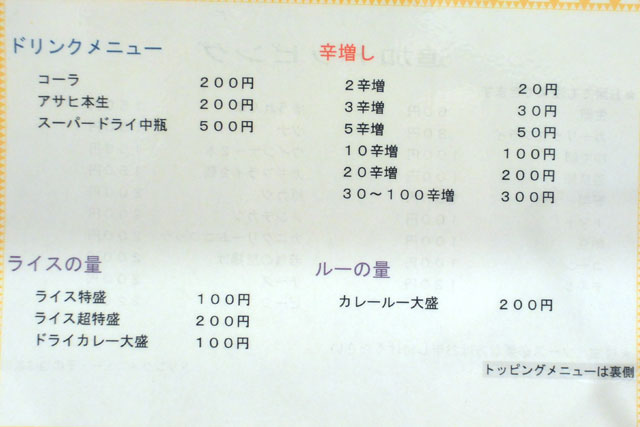 ドリンクメニュー
コーラ 200円
アサヒ本生 200円
スーパードライ中瓶 500円
辛増し
2辛増 20円
3辛増 30円
5辛増 50円
10辛増 100円
20辛増 200円
30〜100辛増 300円
ライスの量
ライス特盛 100円
ライス超特盛 200円
ドライカレー大盛 100円
ルーの量
カレールー大盛 200円
トッピングメニューは裏側